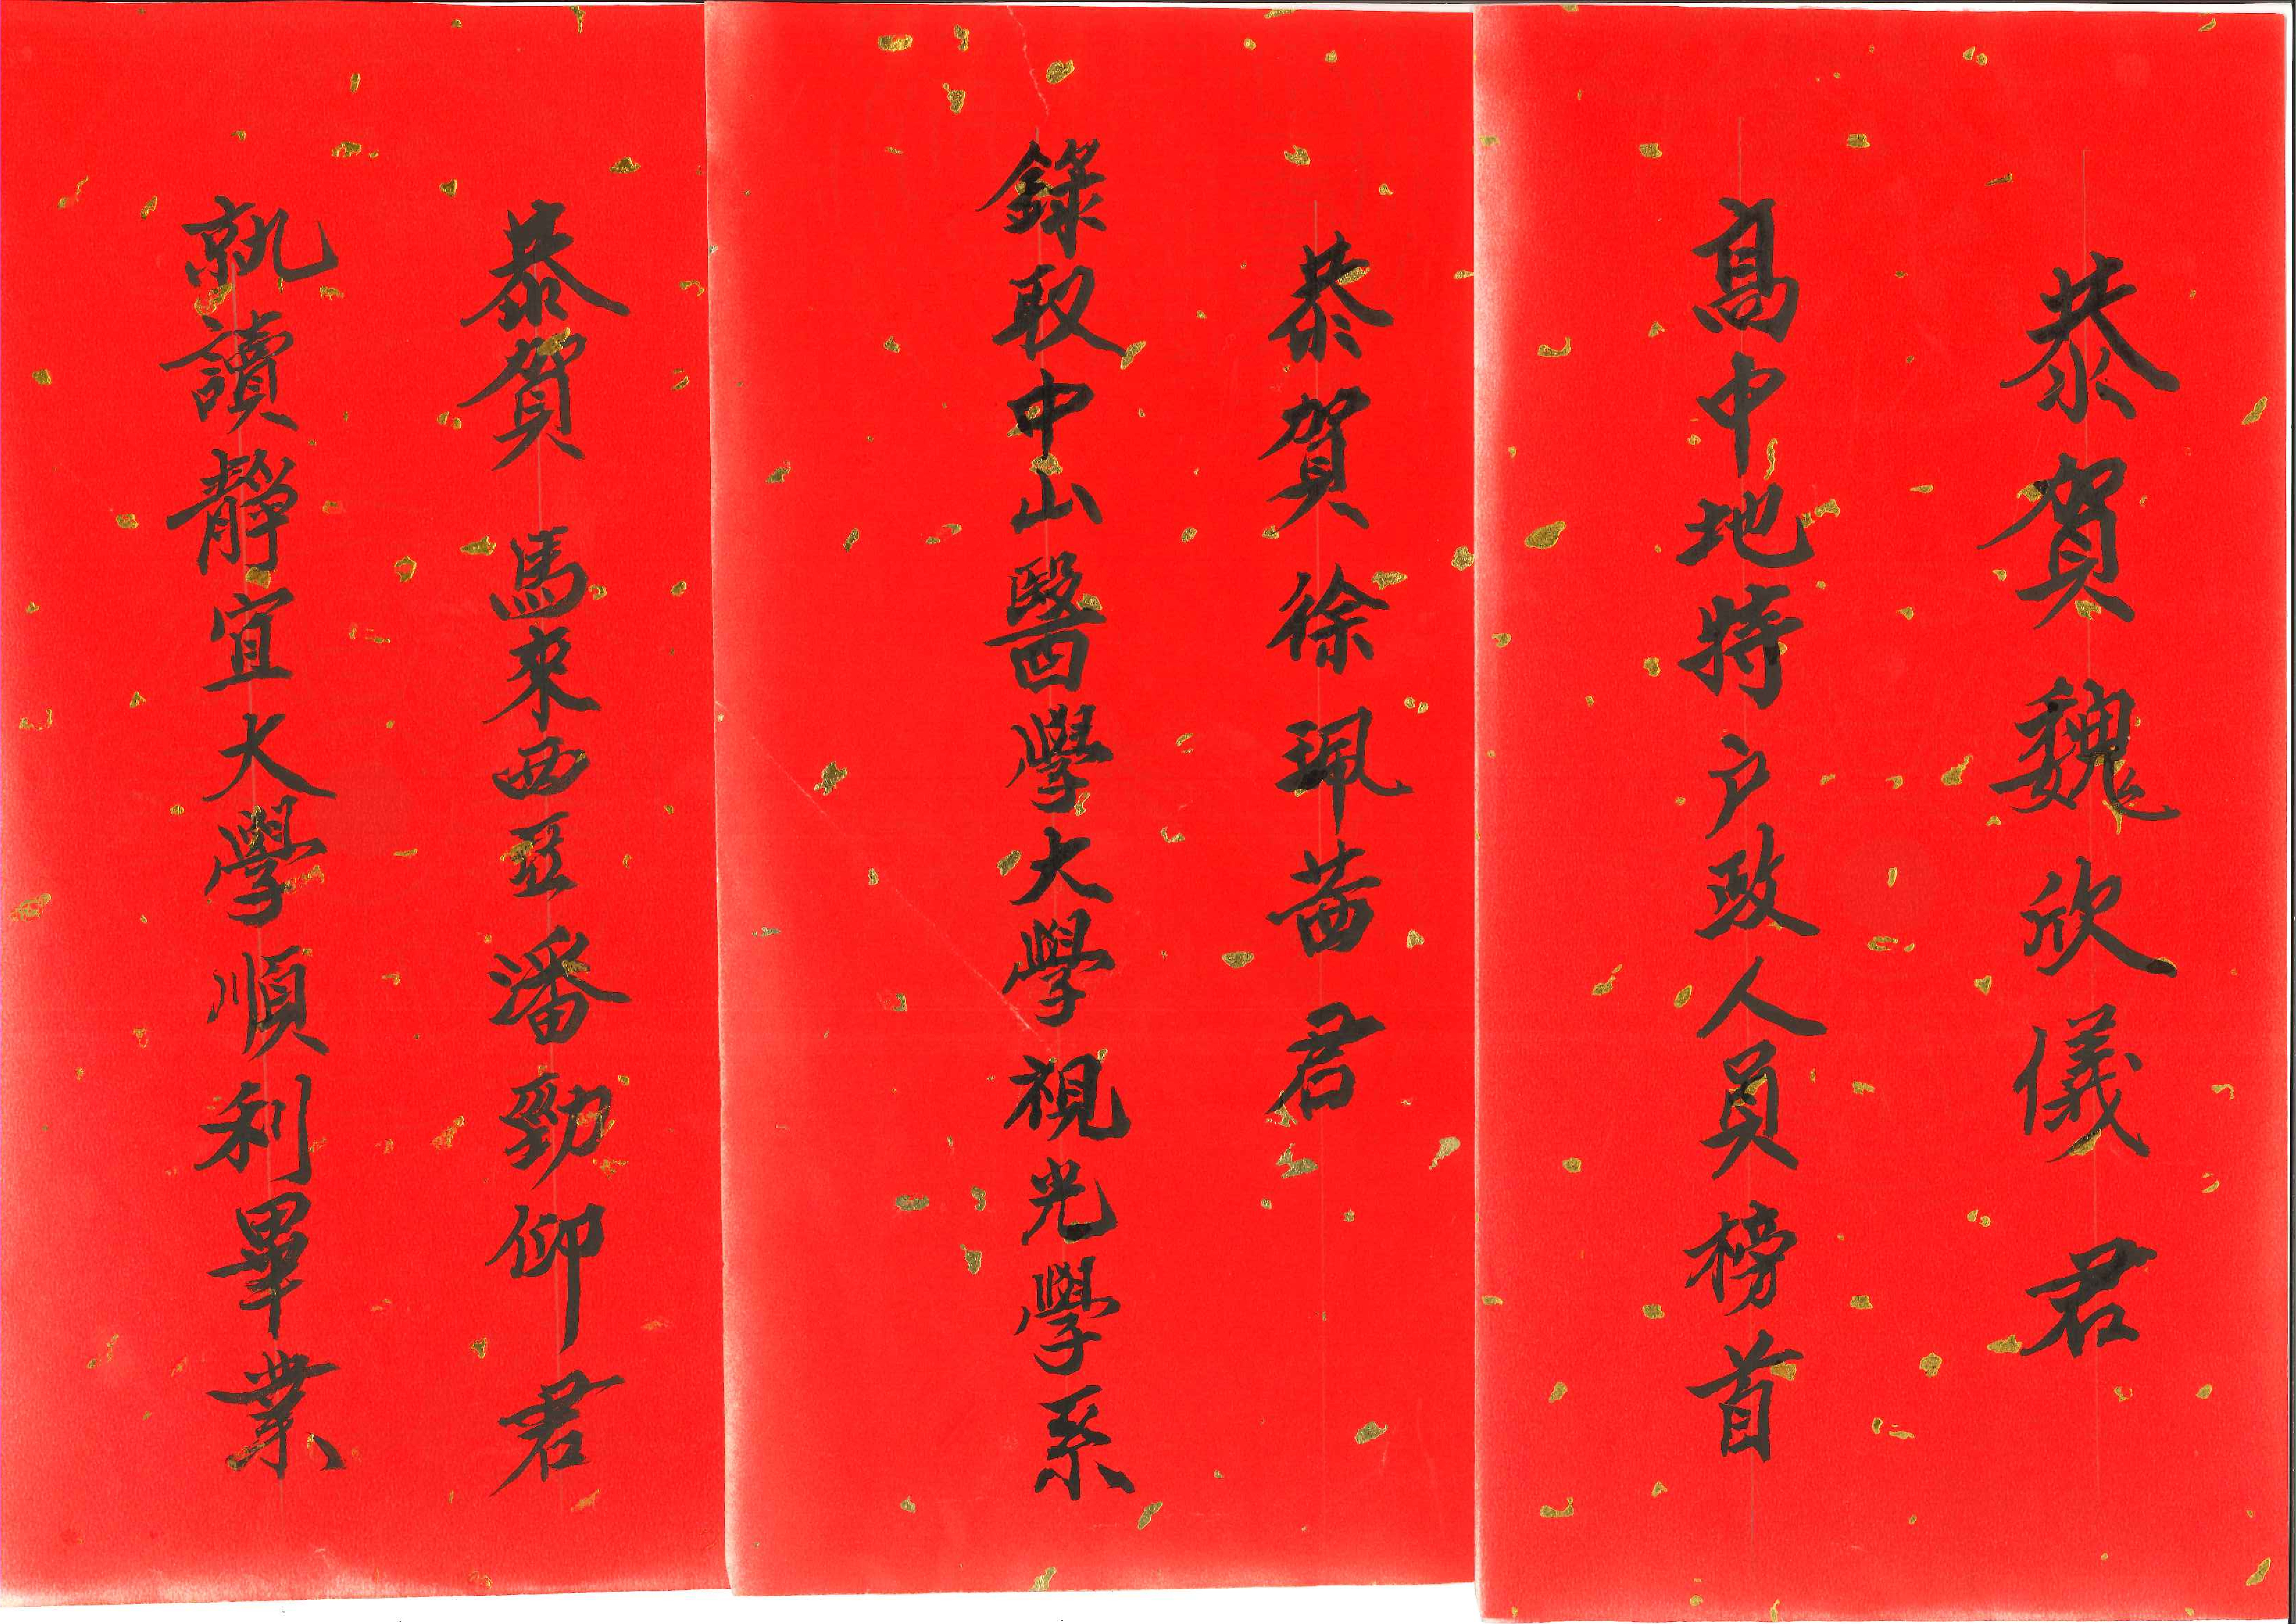 恭賀魏欣儀君
高中地特户政人員榜首
恭賀徐珮茜君
錄取中山醫學大學視光學系
恭賀馬來西亞潘勁仰君
就讀靜宜大學順利畢業